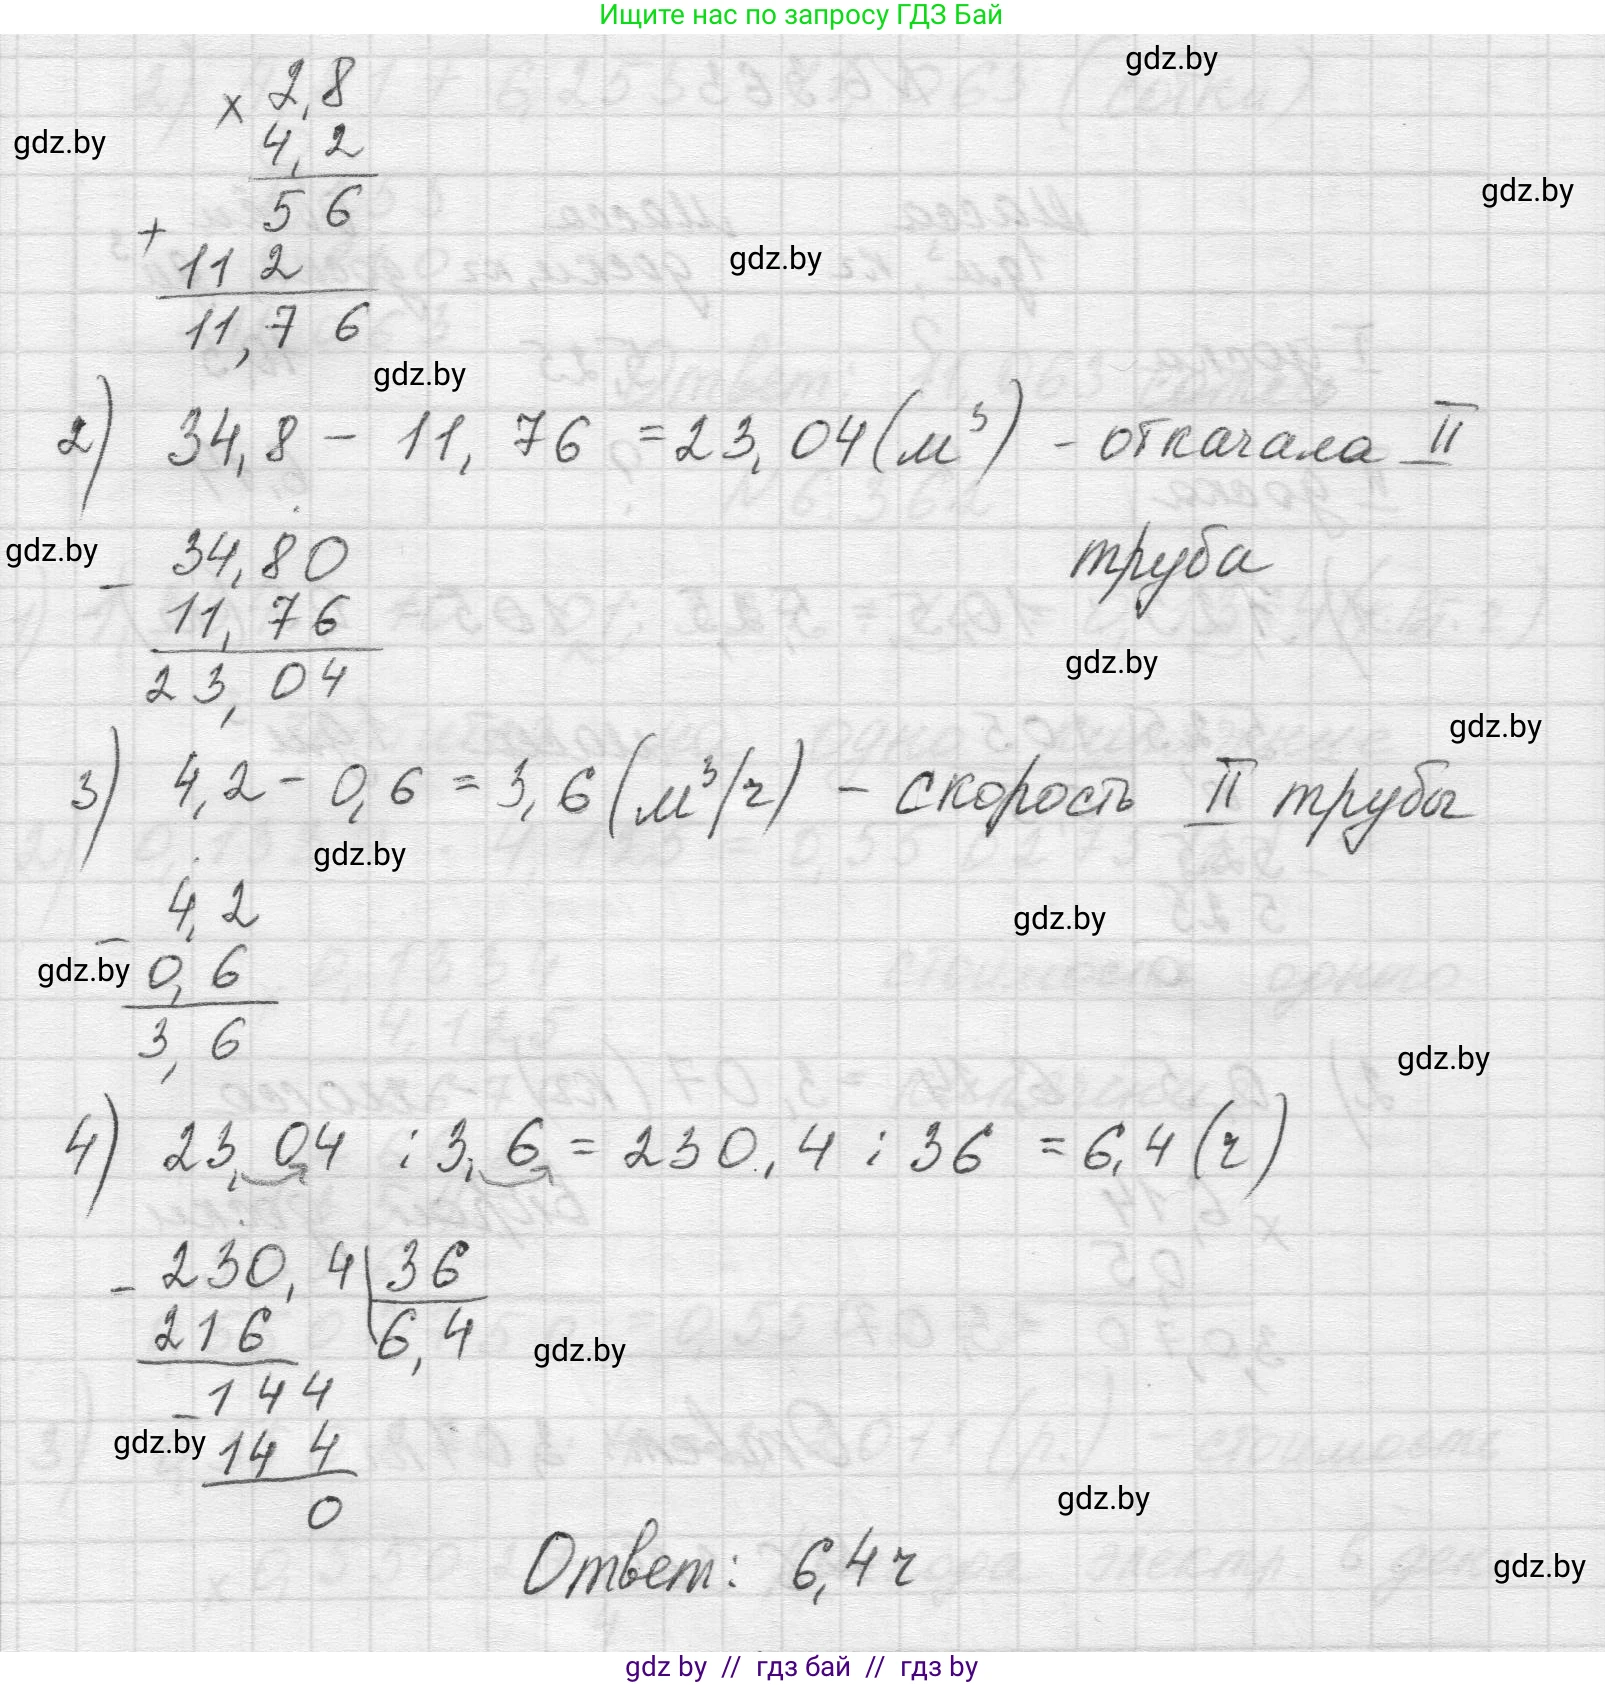 Ищите нас по запросу ГДЗ Бай
gdz.by
× 2,8
4,2
gdz.by
gdz.by
56
+
112
gdz.by
11,76
gdz.by
2) 34,8 - 11,76 = 23,04 (м³) - откачала II
труба
gdz.by
- 34,80
11,76
23,04
gdz.by
gdz.by
3) 4,2 - 0,6 = 3,6 (м³/ч) - скорость II трубы
gdz.by
- 4,2
gdz.by
gdz.by
0,6
3,6
gdz.by
4) 23,04 : 3,6 = 230,4 : 36 = 6,4 (ч)
- 230,4 | 36
216 6,4
gdz.by
- 144
gdz.by
144
0
gdz.by
Ответ: 6,4 ч
gdz.by
gdz by // гдз бай // гдз by